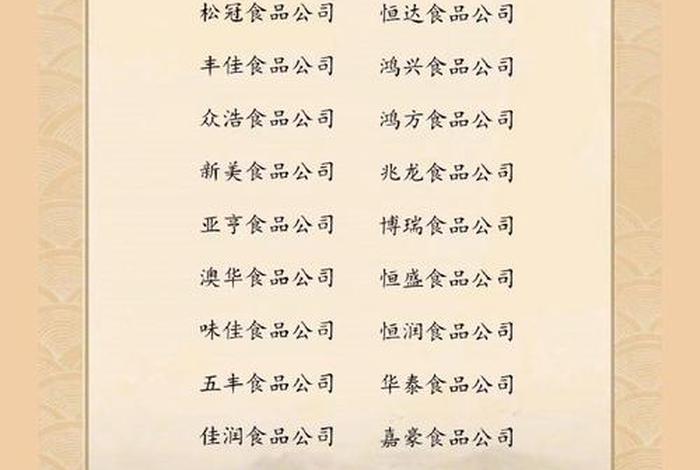 松冠食品公司 恒达食品公司
丰佳食品公司 鸿兴食品公司
众浩食品公司 鸿方食品公司
新美食品公司 兆龙食品公司
亚亨食品公司 博瑞食品公司
澳华食品公司 恒盛食品公司
味佳食品公司 恒润食品公司
五丰食品公司 华泰食品公司
佳润食品公司 嘉豪食品公司